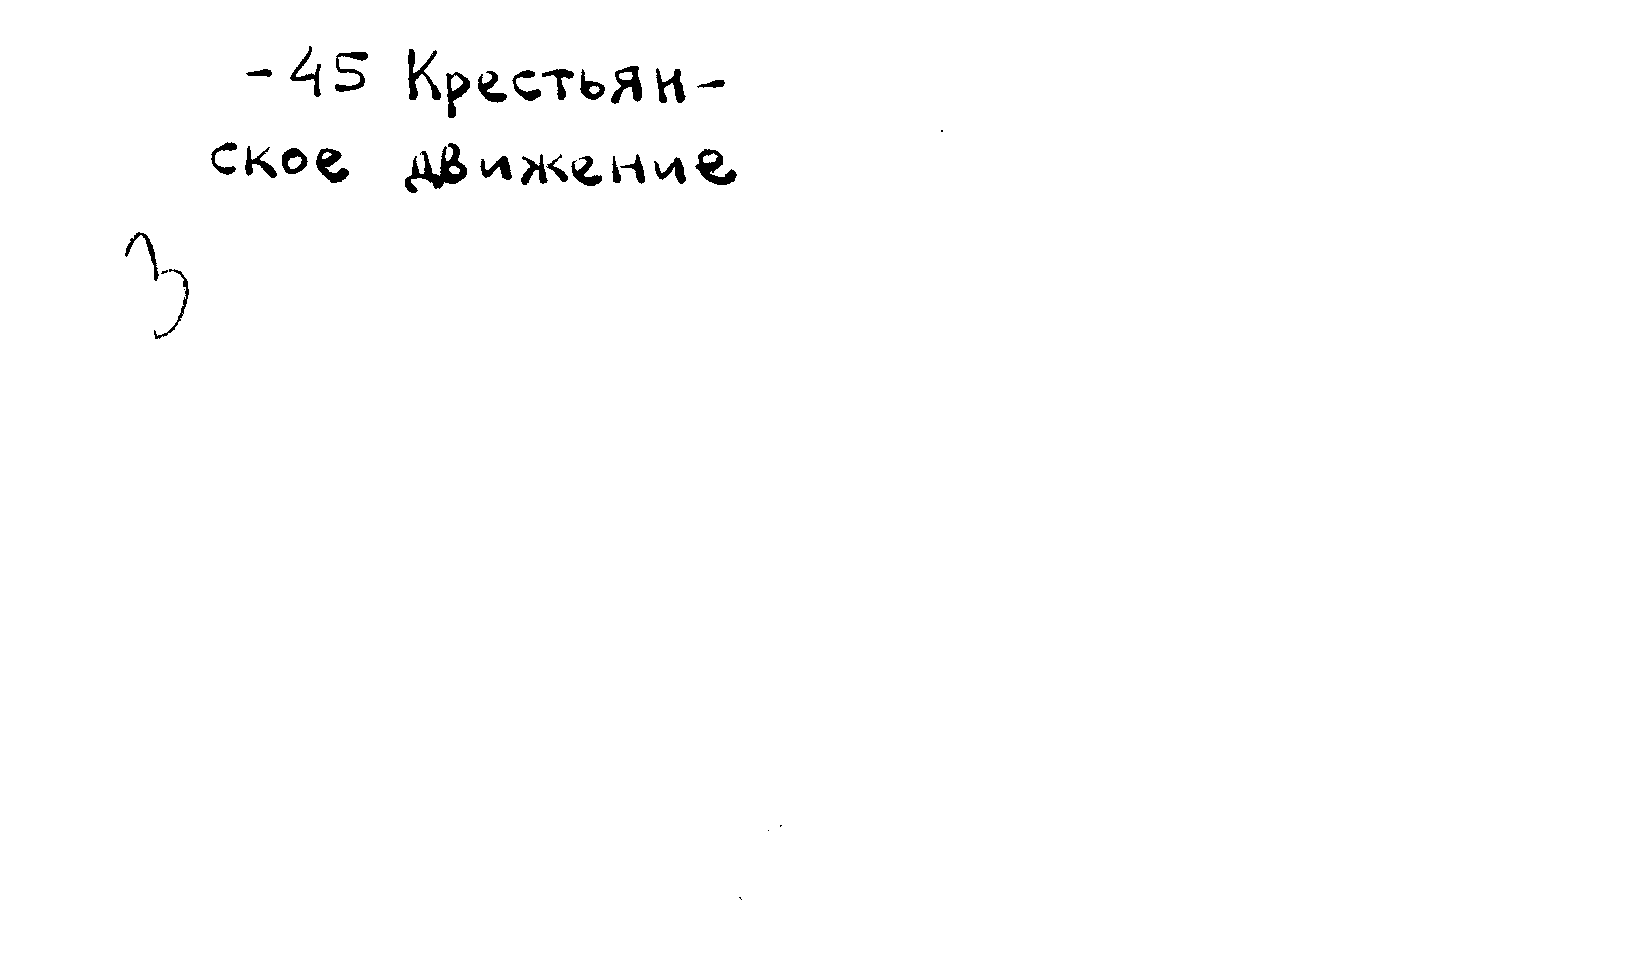 -45 Крестьян-
ское движение
3